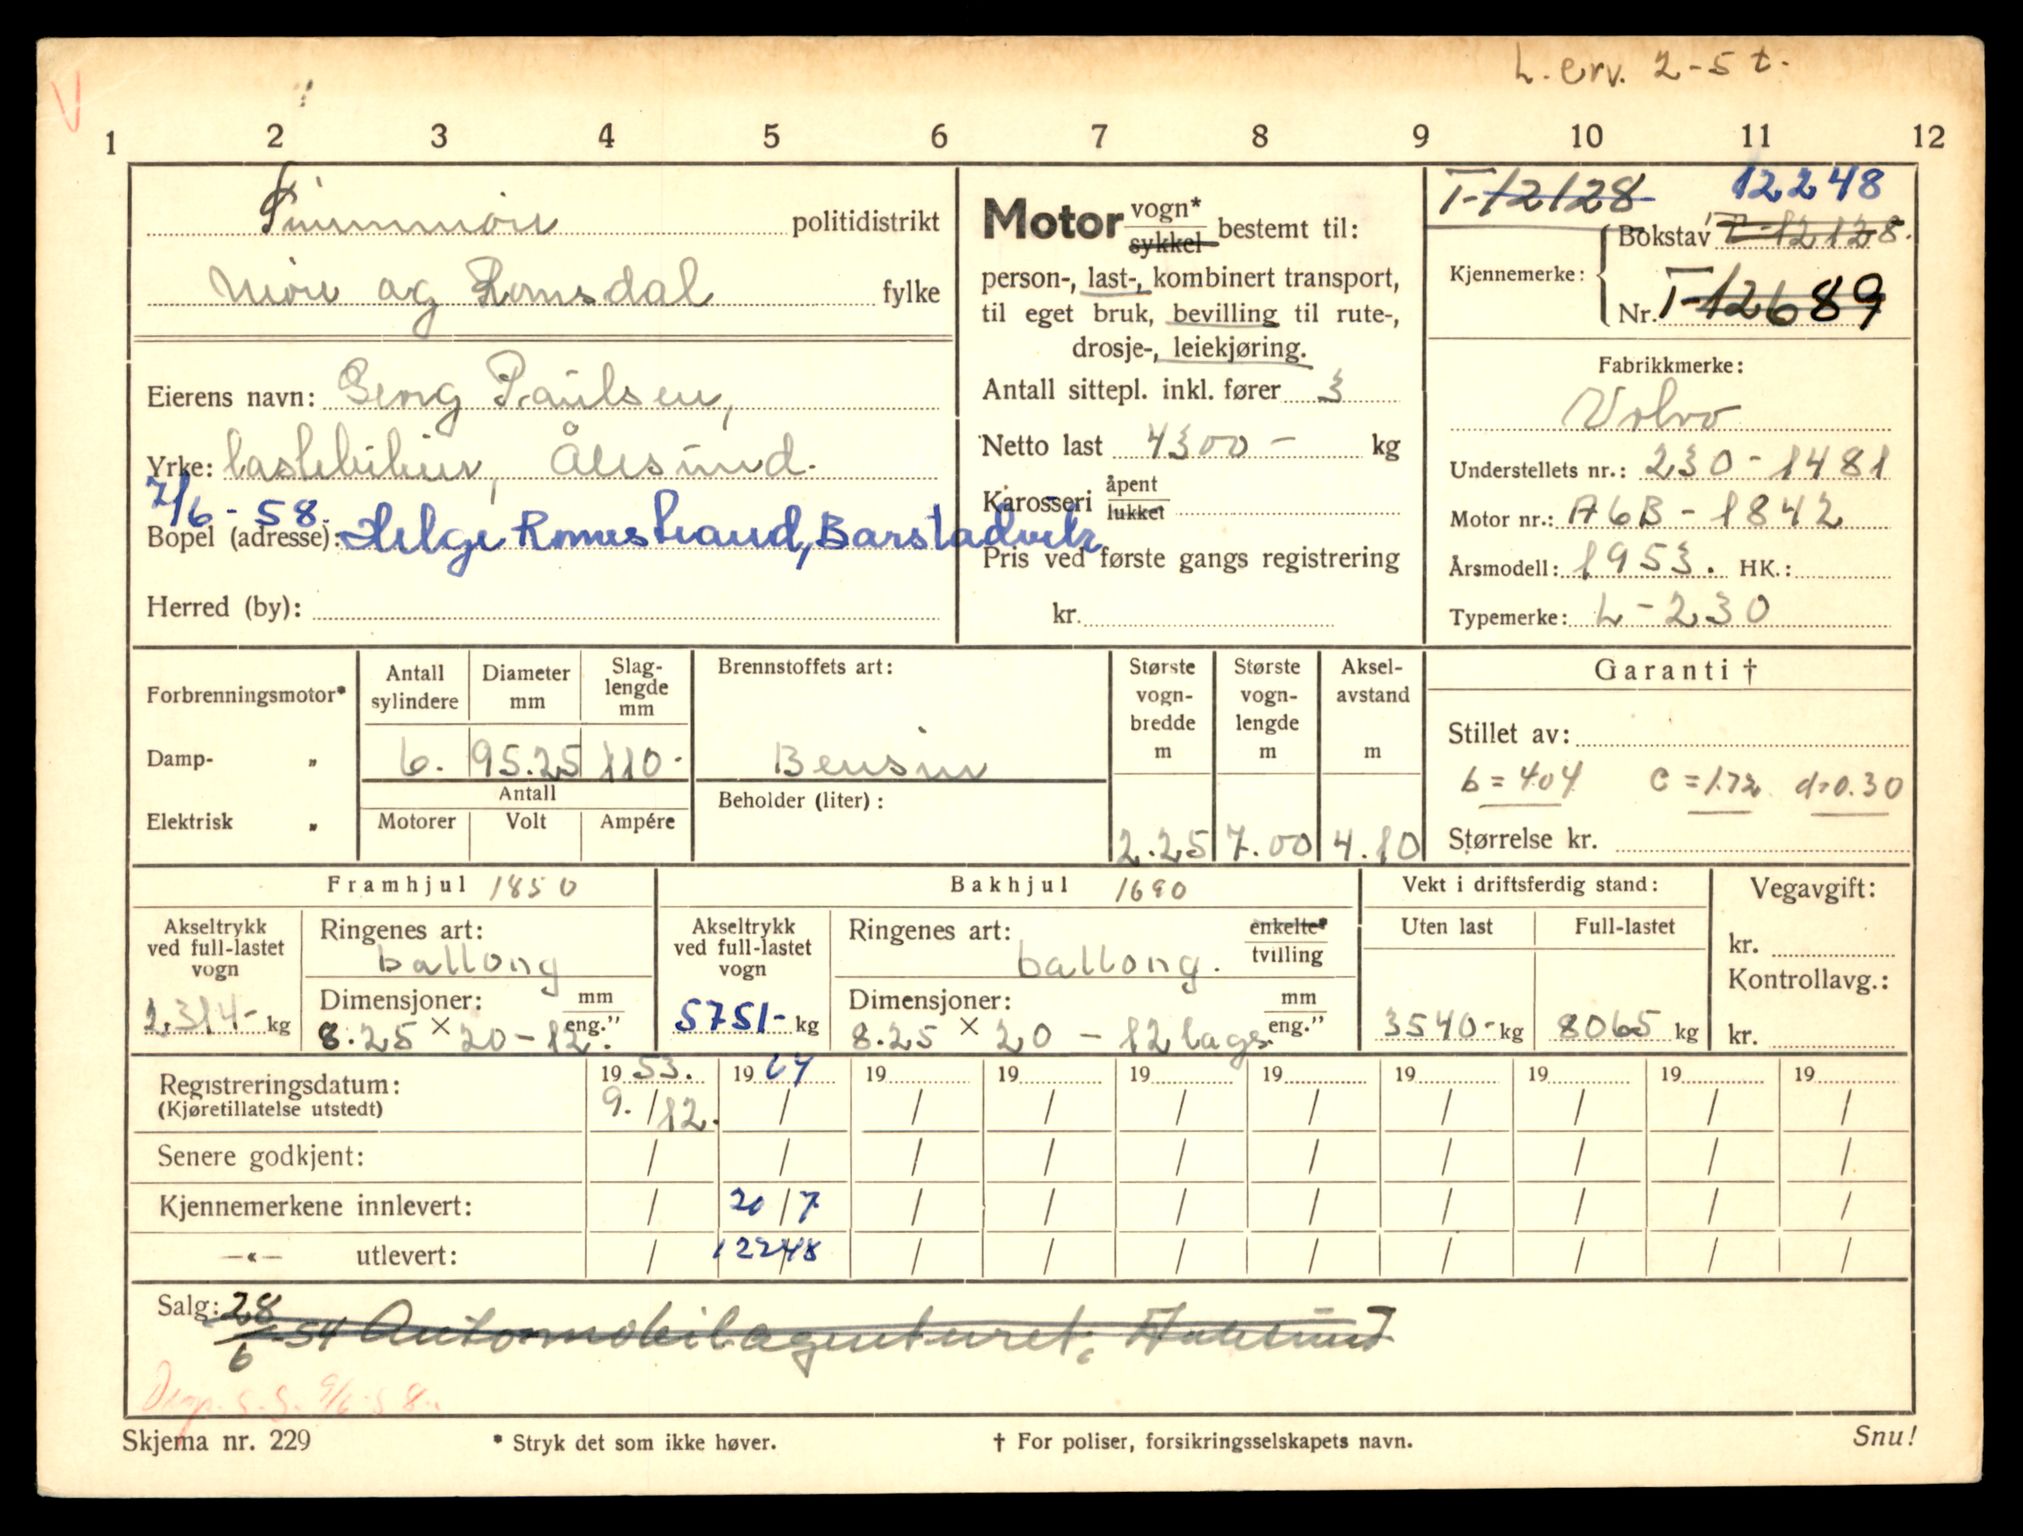 L. erv. 2-5 t.
V
1 2 3 4 5 6 7 8 9 10 11 12
Sunnmøre politidistrikt
Møre og Romsdal fylke
Eierens navn: Georg Paulsen,
Yrke: lastebileier, Ålesund.
7/6-58.
Bopel (adresse): Helge Romestrand, Barstadvik
Herred (by):
Motor vogn* sykkel bestemt til:
person-, last-, kombinert transport,
til eget bruk, bevilling til rute-,
drosje-, leiekjøring.
Antall sittepl. inkl. fører 3
Netto last 4300- kg
Karosseri åpent lukket
Pris ved første gangs registrering
kr.
T-12128 12248
Bokstav T-12128.
Kjennemerke:
Nr. T-12689
Fabrikkmerke:
Volvo
Understellets nr.: 230-1481
Motor nr.: A6B-1842
Årsmodell: 1953. HK.:
Typemerke: L-230
Forbrenningsmotor*
Damp- „
Elektrisk „
Antall sylindere
6.
Diameter mm
95.25
Slag-
lengde
mm
110-
Antall
Motorer Volt Ampére
Brennstoffets art:
Bensin
Beholder (liter):
Største
vogn-
bredde
m
2.25
Største
vogn-
lengde
m
7.00
Aksel-
avstand
m
4.10
Garanti †
Stillet av:
b=4.04 c=1.72 d=0.30
Størrelse kr.
Framhjul 1850
Akseltrykk
ved full-lastet
vogn
2.314- kg
Ringenes art:
ballong
Dimensjoner: mm eng."
8.25 × 20-12.
Bakhjul 1690
Akseltrykk
ved full-lastet
vogn
5751- kg
Ringenes art: enkelte* tvilling
ballong.
Dimensjoner: mm eng."
8.25 × 20 - 12 lags.
Vekt i driftsferdig stand:
Uten last Full-lastet
3540- kg 8065 kg
Vegavgift:
kr.
Kontrollavg.:
kr.
Registreringsdatum: 1953. 1964 19 19 19 19 19 19 19 19
(Kjøretillatelse utstedt) 9./12. / / / / / / / / /
Senere godkjent: / / / / / / / / / /
Kjennemerkene innlevert: / 20/7 / / / / / / / /
—«— utlevert: / 12248 / / / / / / / /
Salg: 28/6-54 Automobilagenturet, Aalesund
9/6-58.
Skjema nr. 229 * Stryk det som ikke høver. † For poliser, forsikringsselskapets navn. Snu!